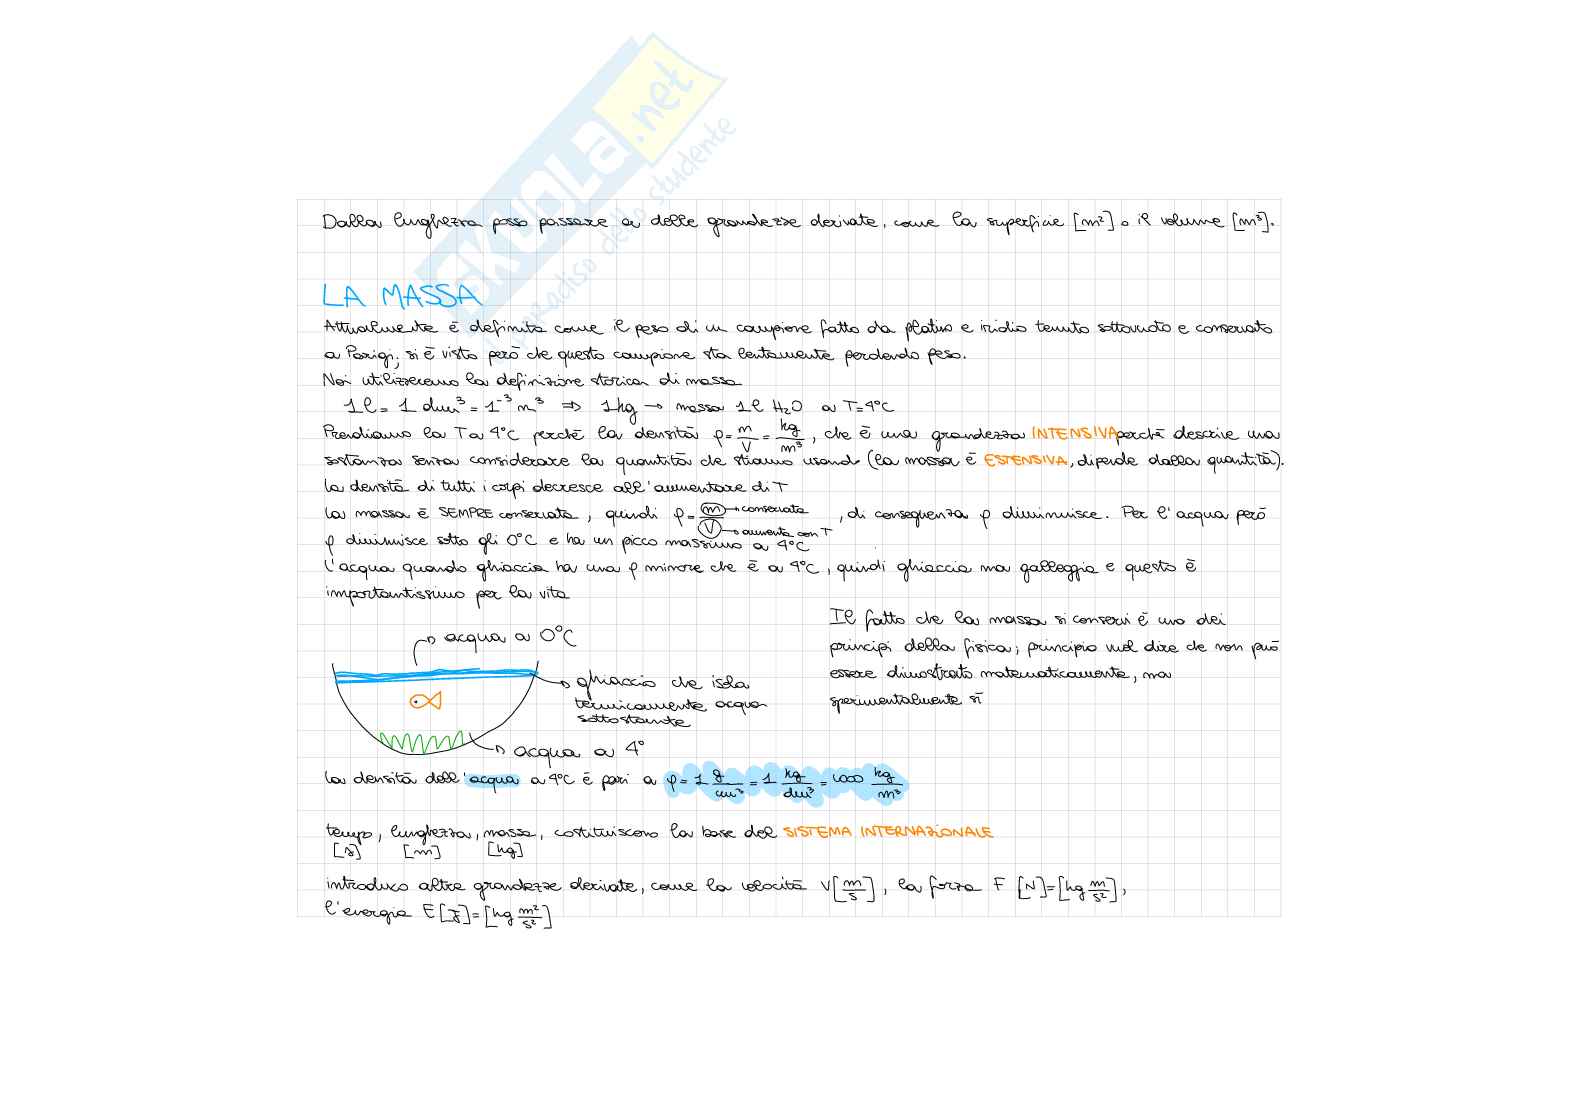 SKUOLA.net
il paradiso dello studente
Dalla lunghezza posso passare a delle grandezze derivate, come la superficie [m²] o il volume [m³].
LA MASSA
Attualmente è definita come il peso di un campione fatto da platino e iridio tenuto sottovuoto e conservato
a Parigi; si è visto però che questo campione sta lentamente perdendo peso.
Noi utilizzeremo la definizione storica di massa
1l = 1 dm³ = 1⁻³ m³ ⇒ 1kg → massa 1l H₂O a T=4°C
Prendiamo la T a 4°C perché la densità ρ = m/V = kg/m³, che è una grandezza INTENSIVA perché descrive una
sostanza senza considerare la quantità che stiamo usando (la massa è ESTENSIVA, dipende dalla quantità).
la densità di tutti i corpi decresce all'aumentare di T
la massa è SEMPRE conservata, quindi ρ = m/V, di conseguenza ρ diminuisce. Per l'acqua però
→ conservata
→ aumenta con T
ρ diminuisce sotto gli 0°C e ha un picco massimo a 4°C
l'acqua quando ghiaccia ha una ρ minore che è a 4°C, quindi ghiaccia ma galleggia e questo è
importantissimo per la vita
→ acqua a 0°C
→ ghiaccio che isola
termicamente acqua
sottostante
→ acqua a 4°
Il fatto che la massa si conservi è uno dei
principi della fisica; principio vuol dire che non può
essere dimostrato matematicamente, ma
sperimentalmente sì
la densità dell'acqua a 4°C è pari a ρ = 1 g/cm³ = 1 kg/dm³ = 1000 kg/m³
tempo, lunghezza, massa, costituiscono la base del SISTEMA INTERNAZIONALE
[s] [m] [kg]
introduco altre grandezze derivate, come la velocità V[m/s], la forza F [N]=[kg m/s²],
l'energia E[J]=[kg m²/s²]